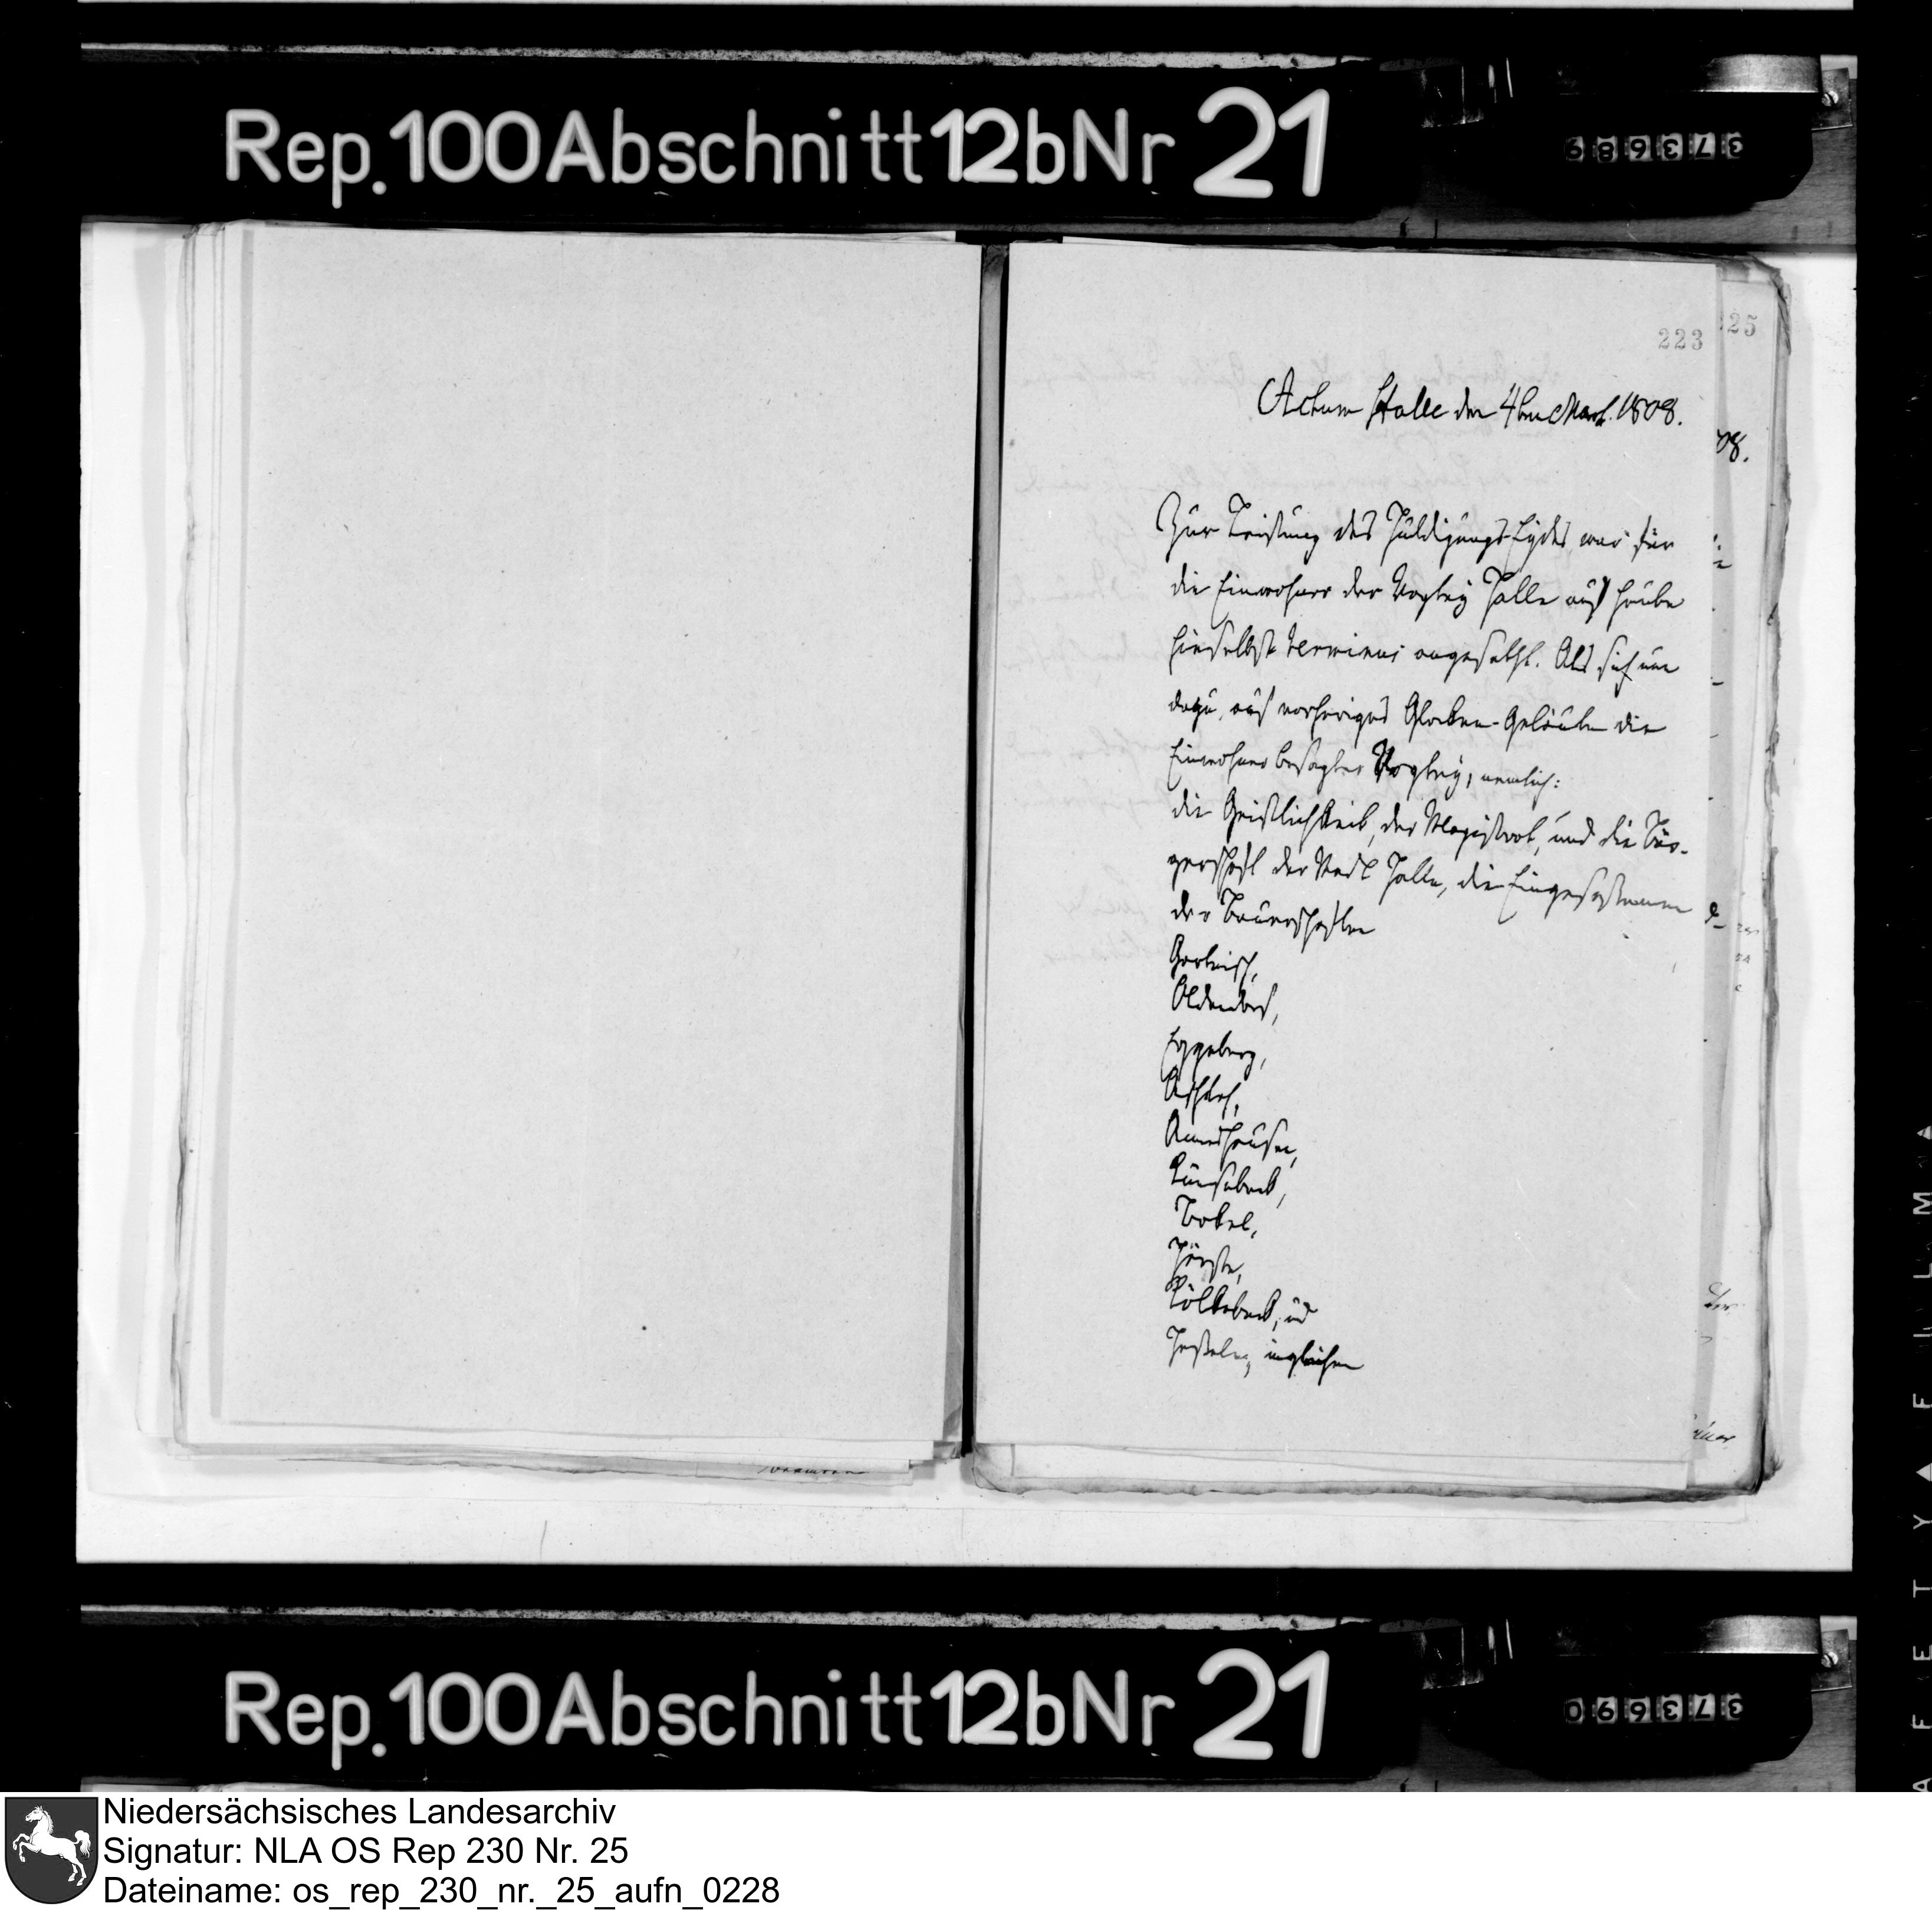 Rep. 100 Abschnitt 12b Nr 21
373689
25
223
Actum Halle den 4ten Maerz. 1808.
08.
Zur Leistung des Huldigungs-Eydes war für
die Einwohner der Vogtey Halle auf heute
hieselbst terminus angesetzt. Als sich nun
dazu, auf vorheriges Glocken-Geläute die
Einwohner besagter Vogtey, nemlich:
die Geistlichkeit, der Magistrat, und die Bür-
gerschaft der Stadt Halle, die Eingesessenen
der Bauerschaften
Gartnisch,
Oldendorf,
Eggeberg,
Aschloh,
Amshausen,
Künsebeck,
Bokel,
Hörste,
Kölkebeck, und
Hesseln, ingleichen
Rep. 100 Abschnitt 12b Nr 21
373690
Niedersächsisches Landesarchiv
Signatur: NLA OS Rep 230 Nr. 25
Dateiname: os_rep_230_nr._25_aufn_0228